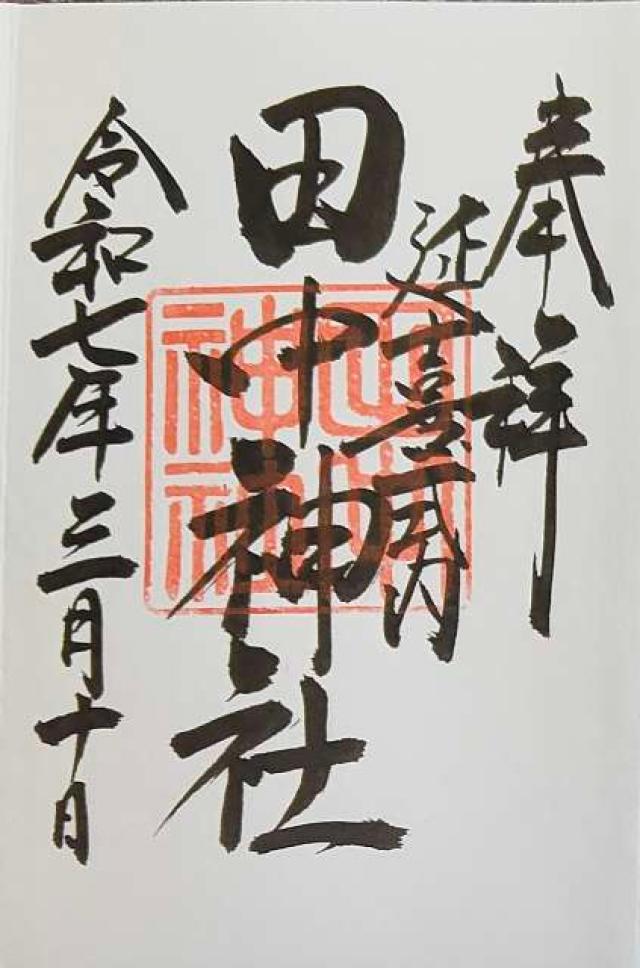 奉拝
延喜式内
田中神社
田中神社
令和七年三月十日